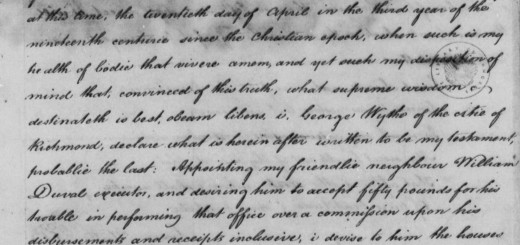 at this time, the twentieth day of April in the third year of the
nineteenth centurie since the Christian epoch, when such is my
health of bodie that vivere amem, and yet such my disposition of
mind that, convinced of this truth, what supreme wisdom
destinateth is best, obeam libens, i, George Wythe of the citie of
Richmond, declare what is herein after written to be my testament,
probablie the last: Appointing my friendlie neighbour William
Duval executor, and desiring him to accept fifty pounds for his
trouble in performing that office over a commission upon his
disbursements and receipts inclusive, i devise to him the houses